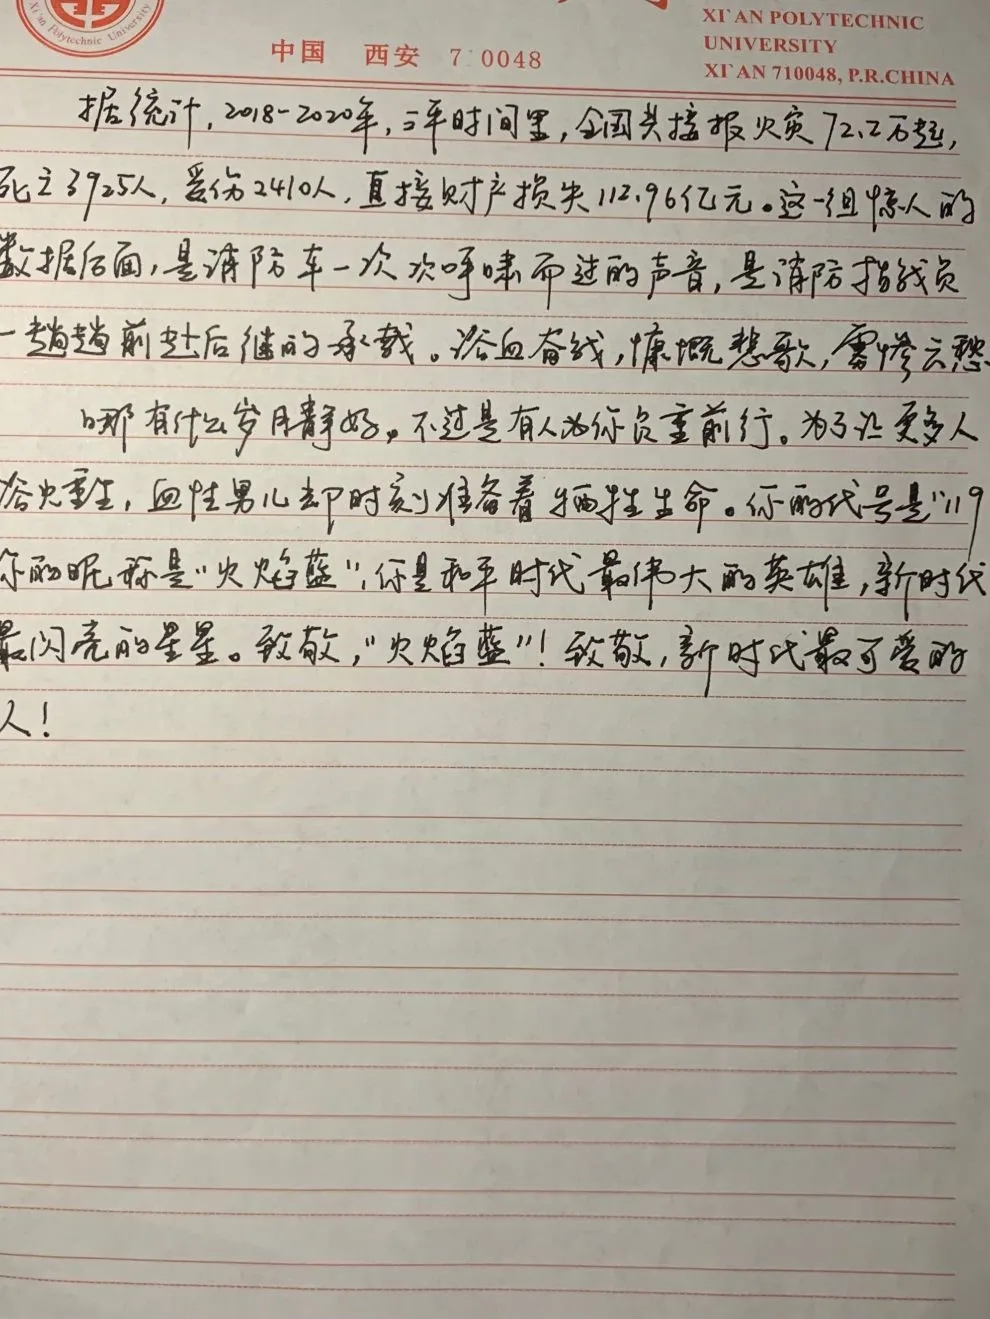 Xi'an Polytechnic University
中国 西安 7 0048
XI'AN POLYTECHNIC
UNIVERSITY
XI'AN 710048, P.R.CHINA
据统计，2018-2020年，三年时间里，全国共接报火灾72.2万起，
死亡3925人，受伤2410人，直接财产损失112.96亿元。这一组惊人的
数据后面，是消防车一次次呼啸而过的声音，是消防指战员
一趟趟前赴后继的承载。浴血奋战，慷慨悲歌，雾惨云愁
哪有什么岁月静好，不过是有人为你负重前行。为了让更多人
浴火重生，血性男儿却时刻准备着牺牲生命。你的代号是“119
你的昵称是“火焰蓝”，你是和平时代最伟大的英雄，新时代
最闪亮的星星。致敬，“火焰蓝”！致敬，新时代最可爱的
人！